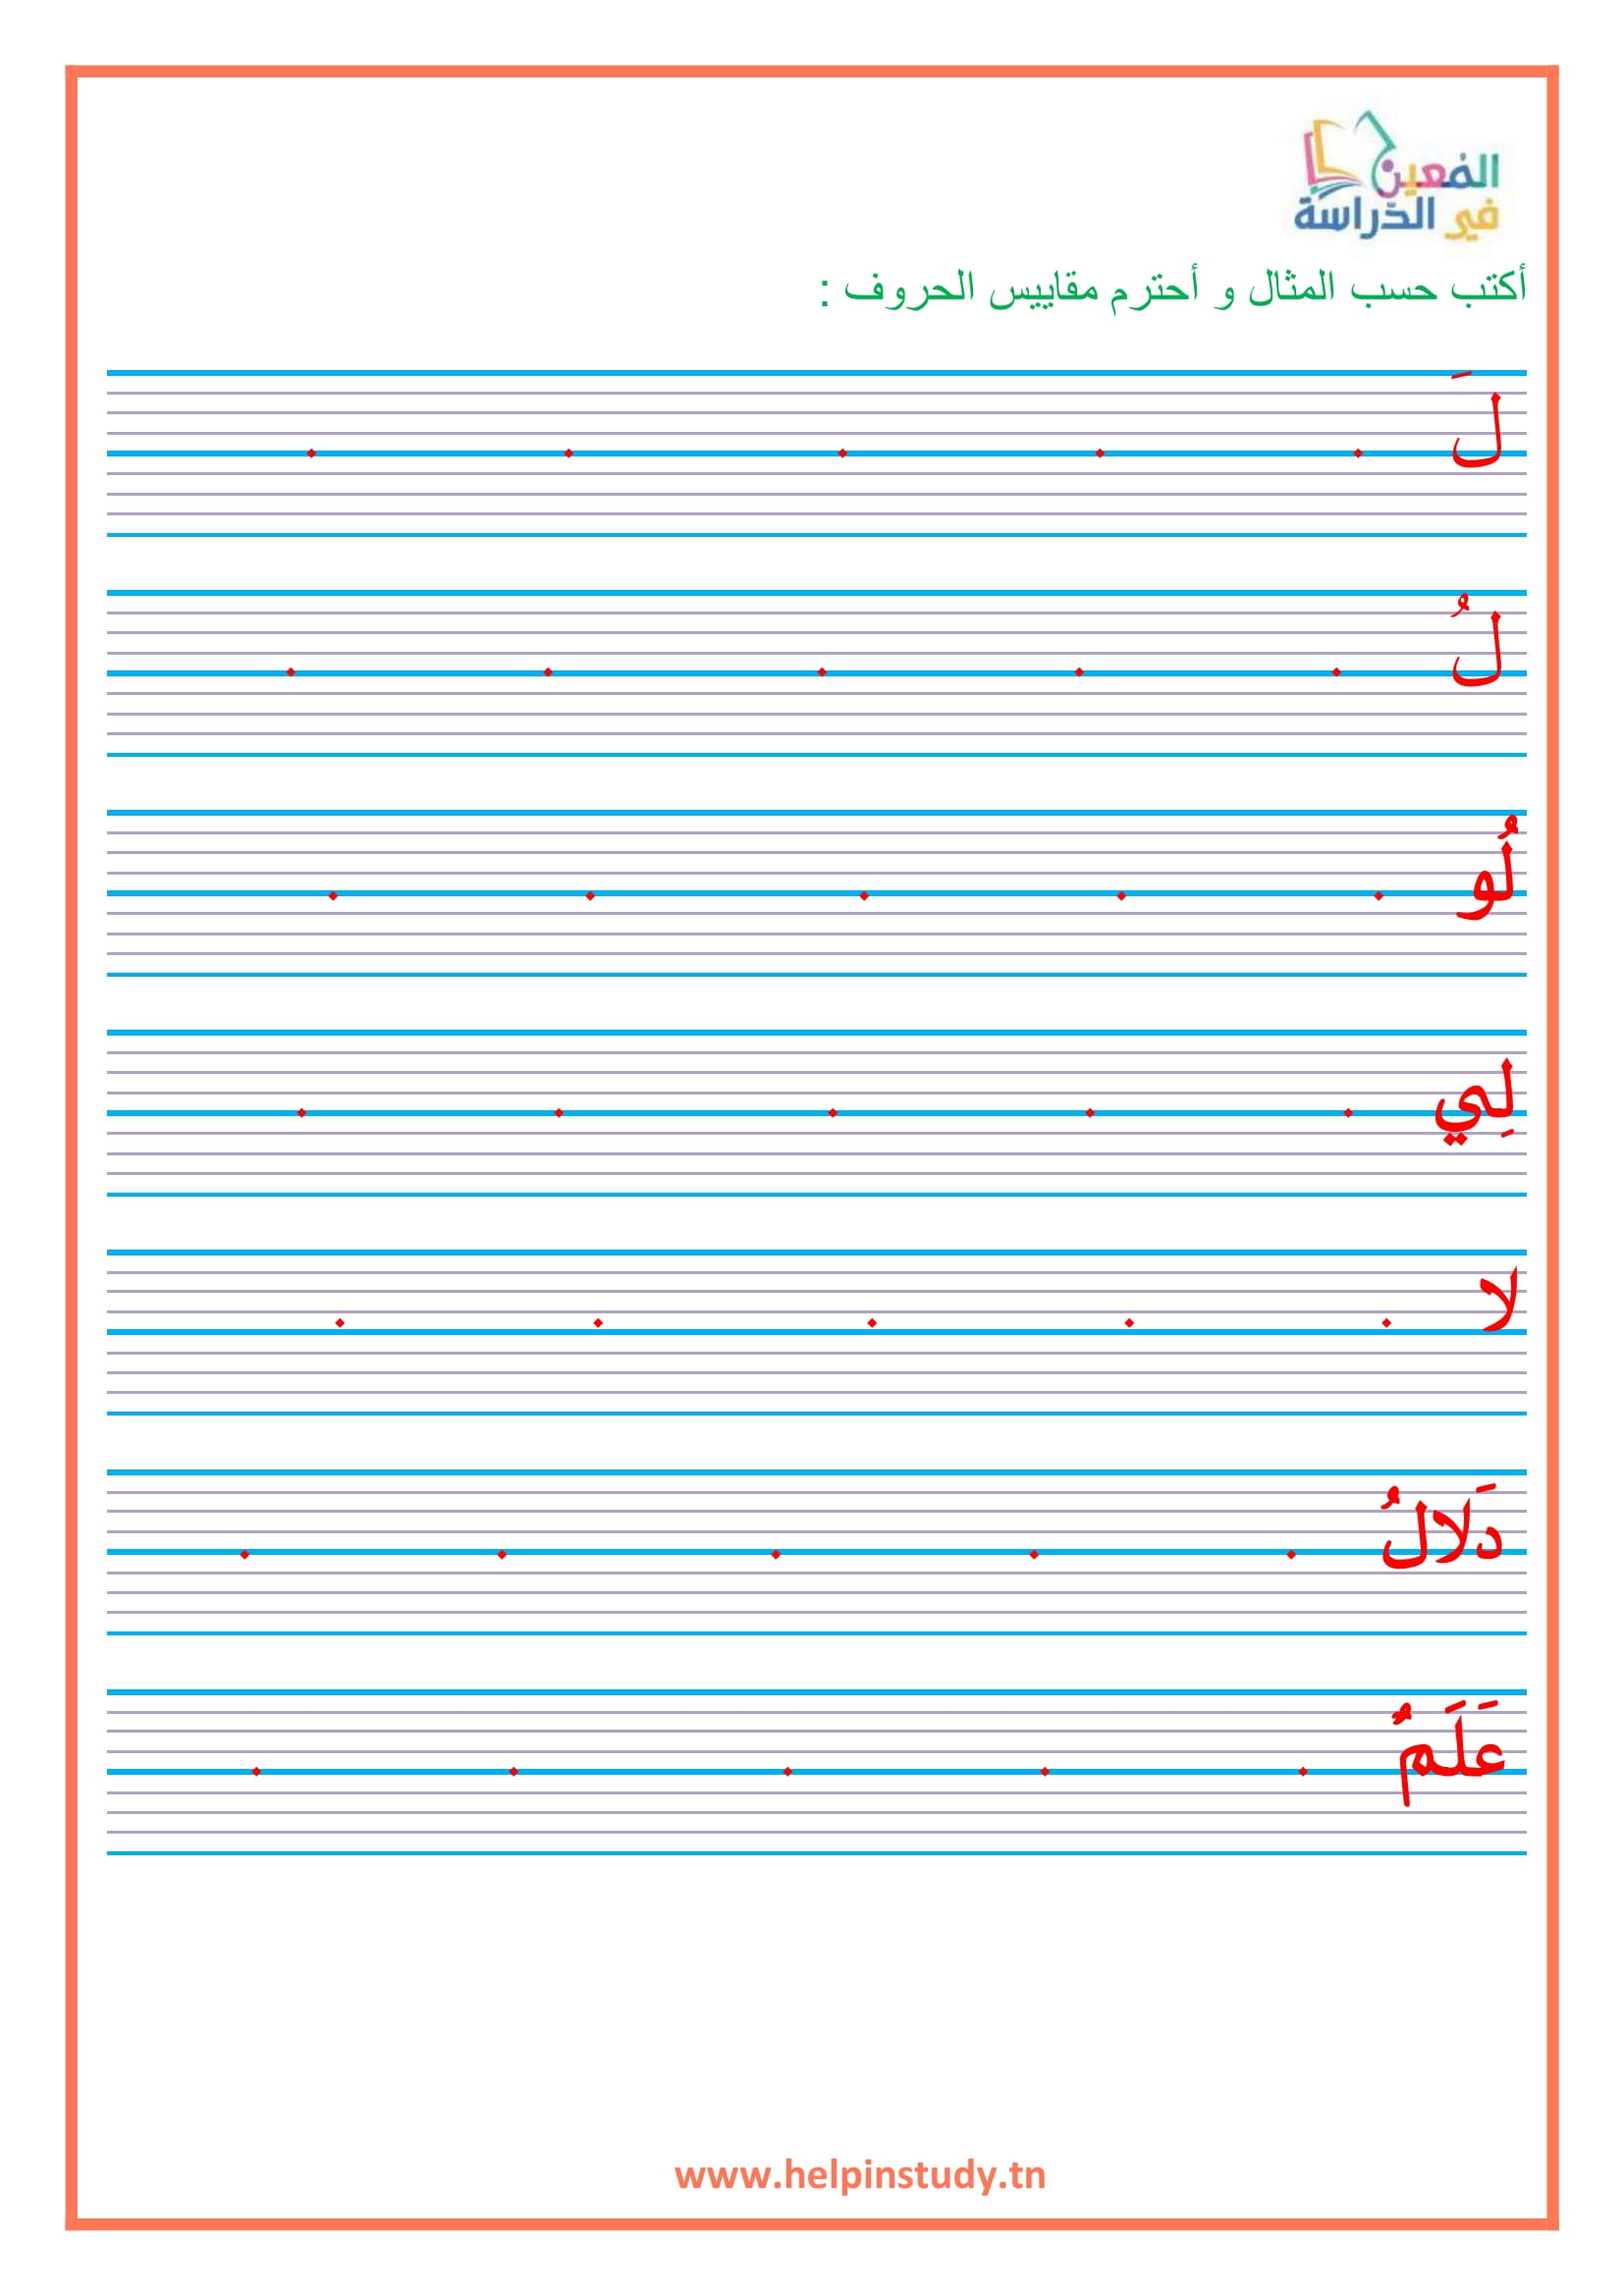 المُعين
في الدّراسة
أكتب حسب المثال و أحترم مقاييس الحروف :
لَ
لُ
لُو
لِي
لا
دَلَالُ
عَلَمٌ
www.helpinstudy.tn